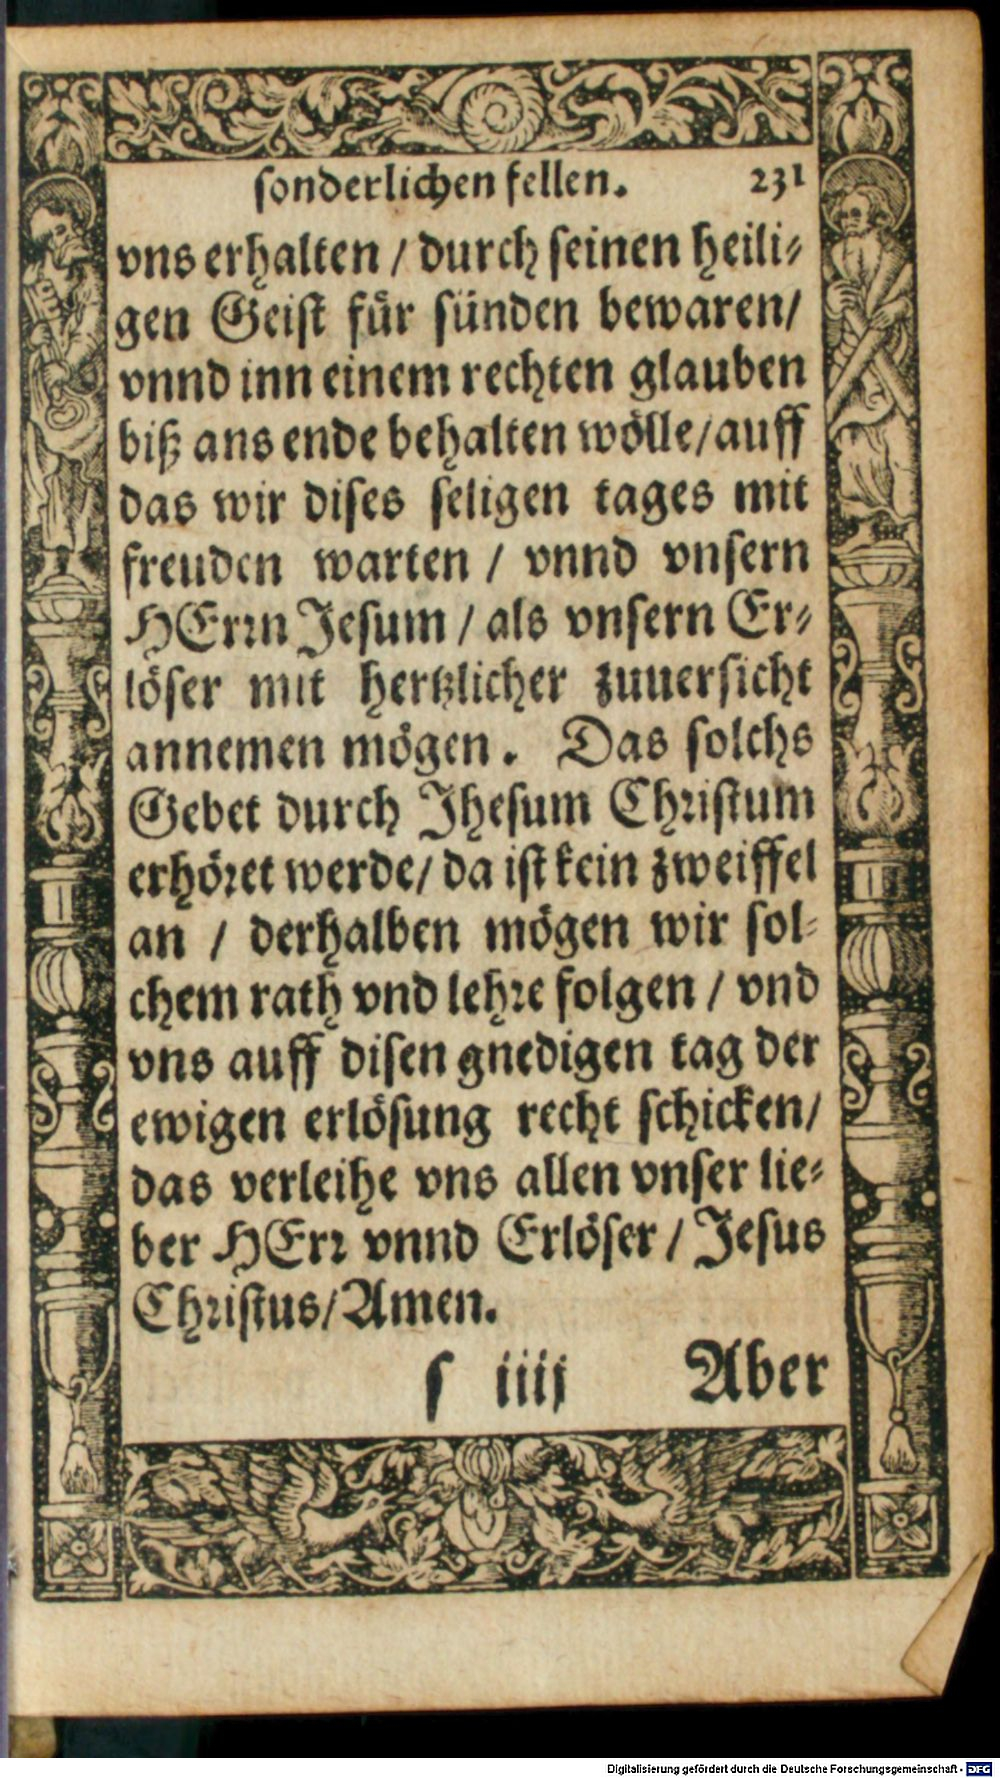 sonderlichen fellen. 231
vns erhalten / durch seinen heili⸗
gen Geist fuͤr sünden bewaren/
vnnd inn einem rechten glauben
biß ans ende behalten wölle/auff
das wir dises seligen tages mit
freuden warten / vnnd vnsern
HErrn Jesum / als vnsern Er⸗
löser mit hertzlicher zuuersicht
annemen mögen. Das solchs
Gebet durch Jhesum Christum
erhöret werde/ da ist kein zweiffel
an / derhalben mögen wir sol⸗
chem rath vnd lehre folgen / vnd
vns auff disen gnedigen tag der
ewigen erlösung recht schicken/
das verleihe vns allen vnser lie⸗
ber HErr vnnd Erlöser / Jesus
Christus/Amen.
s iiij Aber
Digitalisierung gefördert durch die Deutsche Forschungsgemeinschaft - DFG